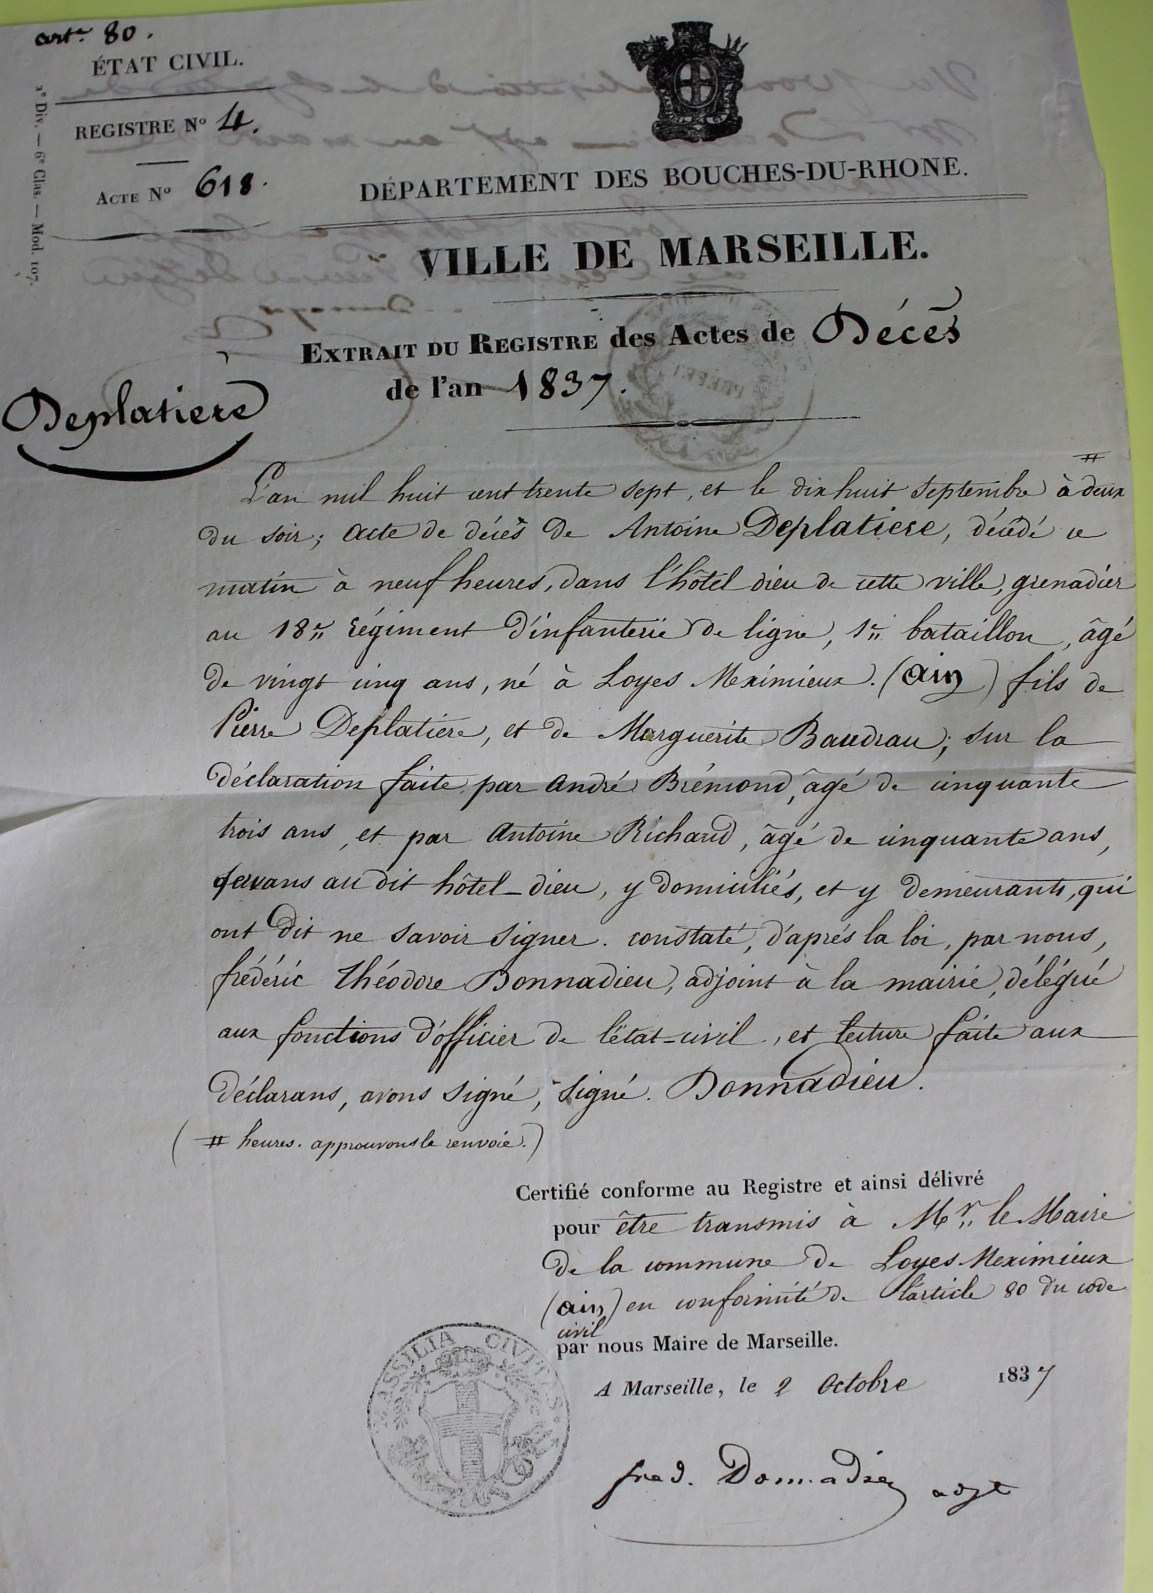 art. 80.
ÉTAT CIVIL.
REGISTRE Nº 4.
ACTE Nº 618.
2e Div. — 6e Clas. — Mod. 107.
DÉPARTEMENT DES BOUCHES-DU-RHONE.
VILLE DE MARSEILLE.
EXTRAIT DU REGISTRE des Actes de Décès
de l'an 1837.
Deplatière
L'an mil huit cent trente sept, et le dix huit Septembre à deux #
du soir; acte de décès de Antoine Deplatiere, décédé ce
matin à neuf heures, dans l'hôtel dieu de cette ville, grenadier
au 18e régiment d'infanterie de ligne, 1er bataillon, âgé
de vingt cinq ans, né à Loyes Meximieux. (ain) fils de
Pierre Deplatière, et de Marguerite Baudrau; sur la
déclaration faite par André Brémond, âgé de cinquante
trois ans, et par Antoine Richaud, âgé de cinquante ans,
servans au dit hôtel-dieu, y domiciliés, et y demeurants, qui
ont dit ne savoir signer. constaté, d'après la loi, par nous,
frédéric théodore Donnadieu, adjoint à la mairie, délégué
aux fonctions d'officier de l'état-civil, et lecture faite aux
déclarans, avons signé, signé. Donnadieu.
(# heures. approuvons le renvoie.)
Certifié conforme au Registre et ainsi délivré
pour être transmis à Mr. le Maire
de la commune de Loyes Meximieux
(ain) en conformité de l'article 80 du code
civil
par nous Maire de Marseille.
A Marseille, le 2 Octobre 1837
MASSILIA CIVITAS
fred. Donnadieu adjt